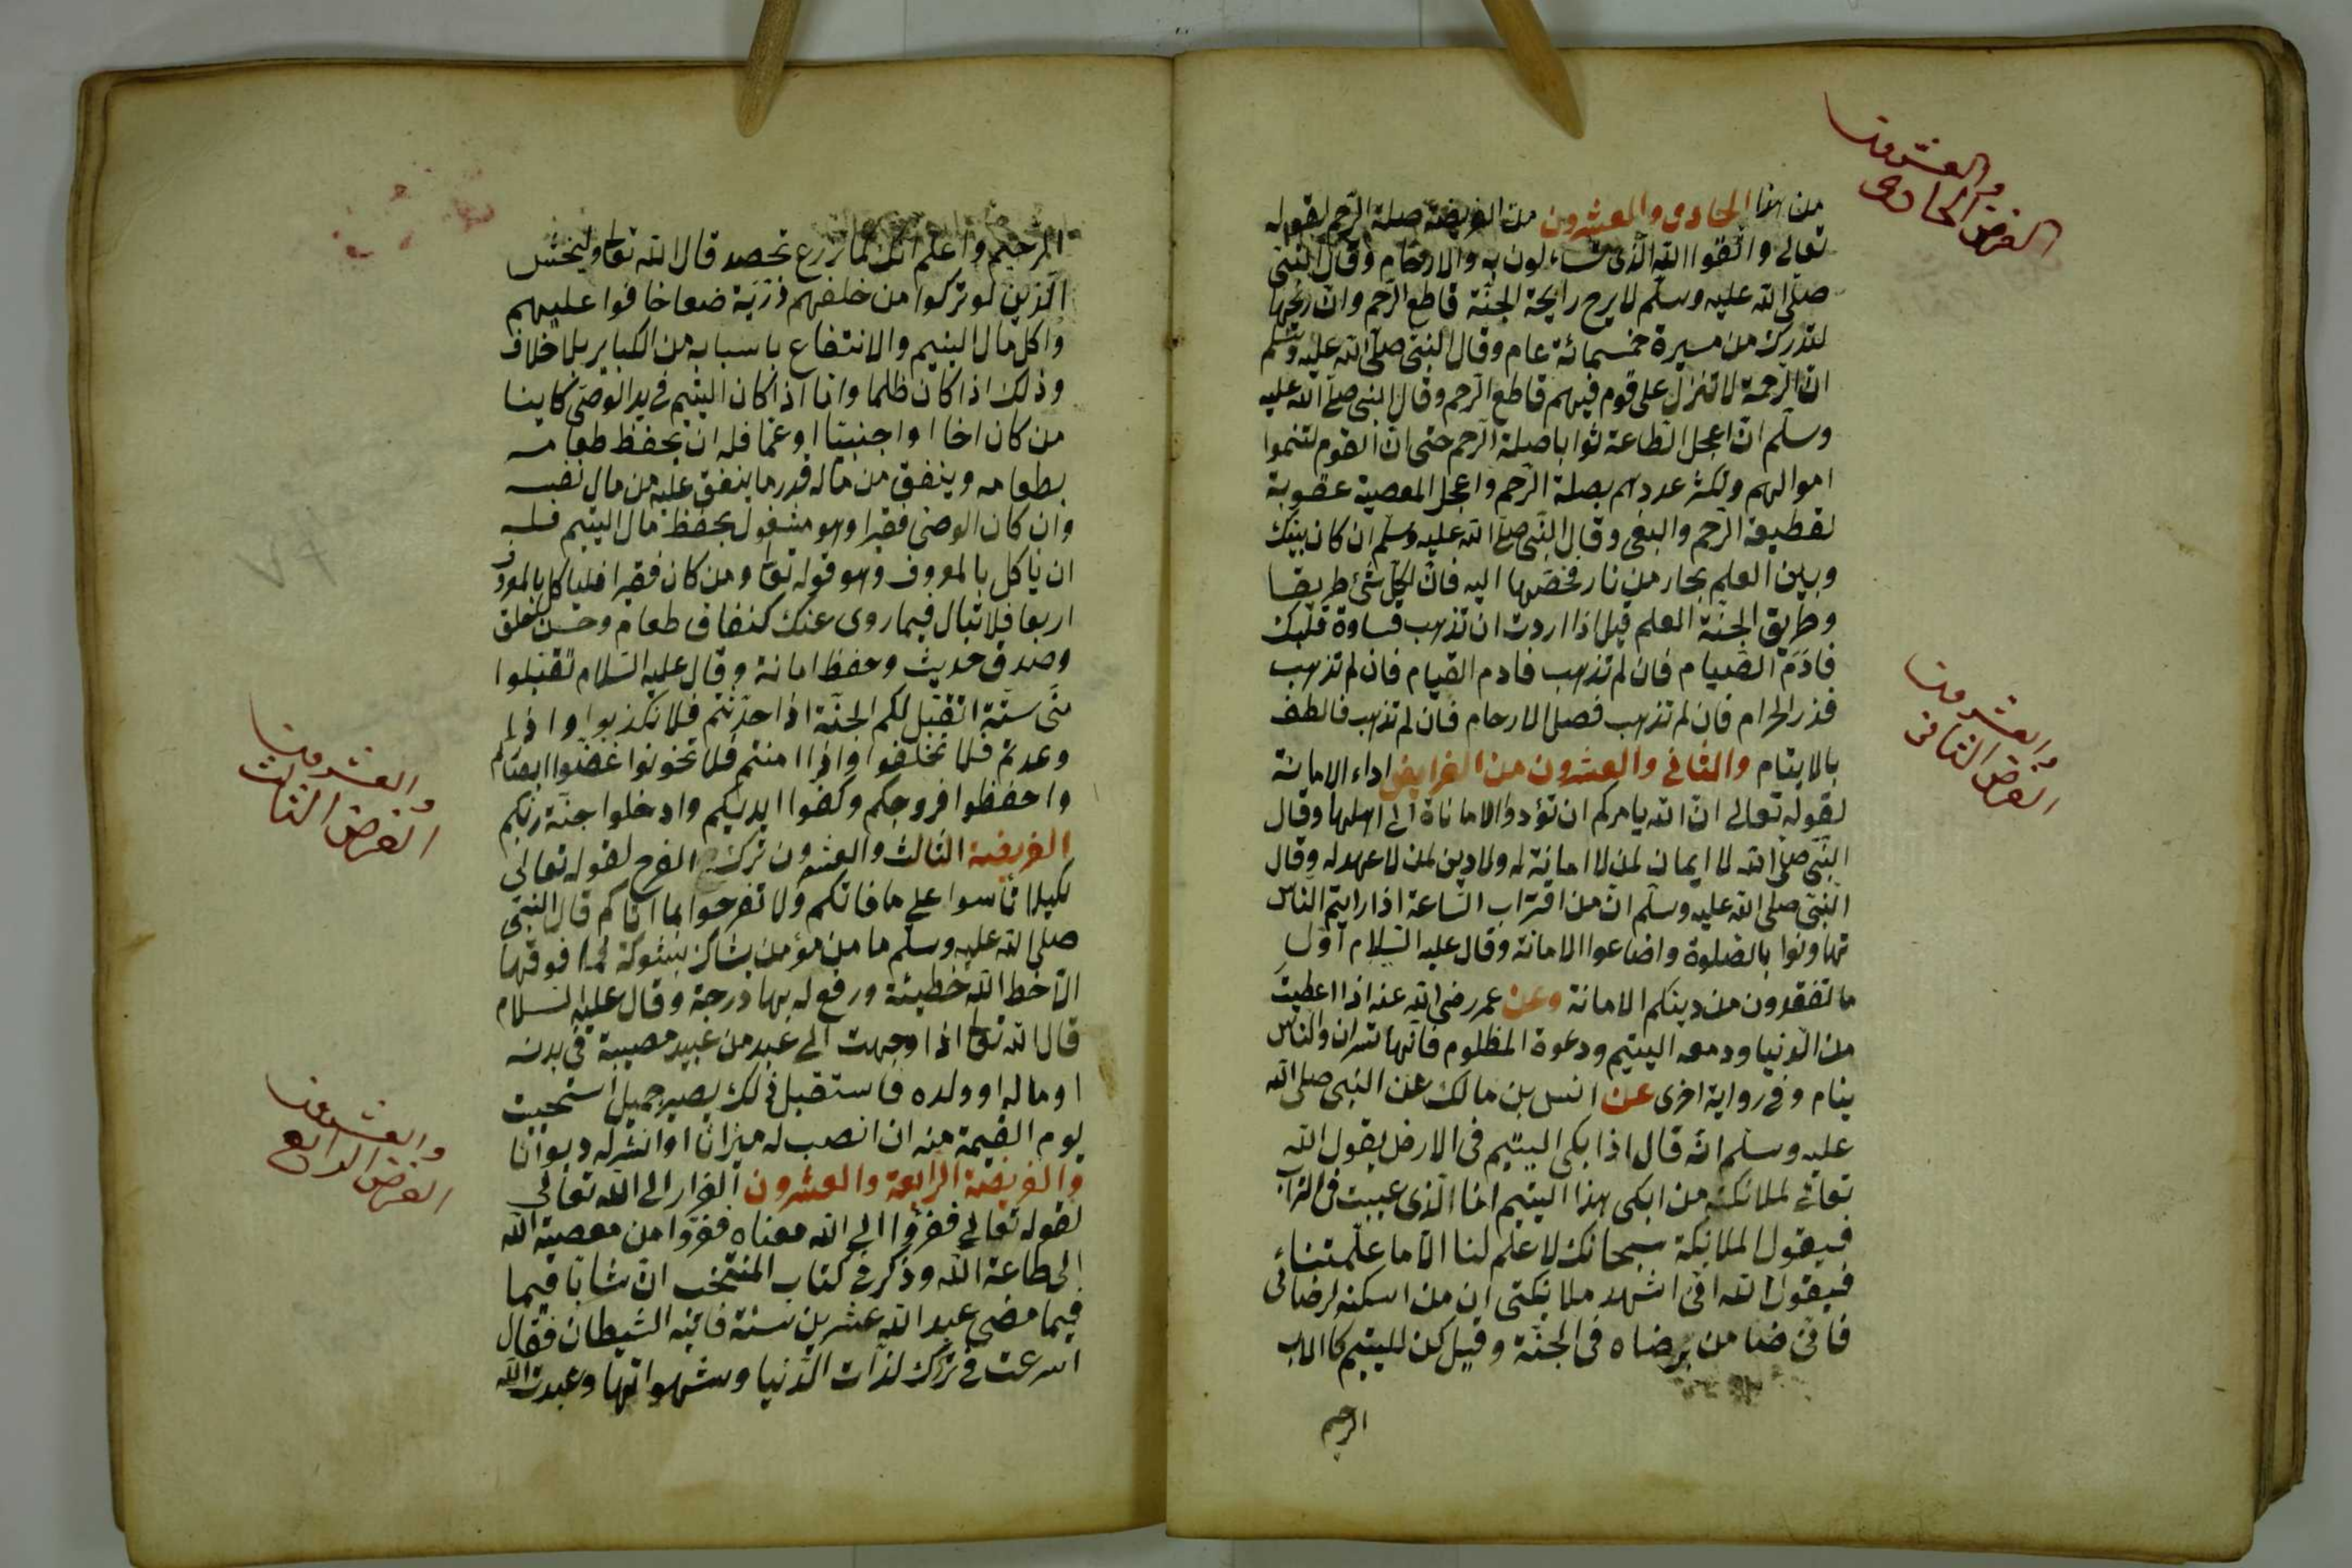 والعشرون
الفرض الحادى
من هذا الحادى والعشرون من الفريضة صلة الرحم لقوله
تعالى واتقوا الله الذى تساءلون به والارحام وقال النبى
صلى الله عليه وسلم لا يرح رايحة الجنة قاطع الرحم وان ريحها
لتدرك من مسيرة خمسمائة عام وقال النبى صلى الله عليه وسلم
ان الرحمة لا تنزل على قوم فيهم قاطع الرحم وقال النبى صلى الله عليه
وسلم ان اعجل الطاعة ثوابا صلة الرحم حتى ان القوم لتنموا
اموالهم ولكثر عددهم بصلة الرحم واعجل المعصية عقوبة
لقطيعة الرحم والبغى وقال النبى صلى الله عليه وسلم ان كان بينك
وبين العلم بحار من نار فخضها اليه فان لكل شئ طريقا
وطريق الجنة العلم قيل اذا اردت ان تذهب قساوة قلبك
فادم الصيام فان لم تذهب فادم القيام فان لم تذهب
فذر الحرام فان لم تذهب فصل الارحام فان لم تذهب فالطف
والعشرون
الفرض الثانى
بالايتام والثانى والعشرون من الفرايض اداء الامانة
لقوله تعالى ان الله يامركم ان تؤدوا الاماناة الى اهلها وقال
النبى صلى الله لا ايمان لمن لا امانة له ولا دين لمن لا عهد له وقال
النبى صلى الله عليه وسلم ان من اقتراب الساعة اذا رايتم الناس
تهاونوا بالصلوة واضاعوا الامانة وقال عليه السلام اول
ما تفقدون من دينكم الامانة وعن عمر رضى الله عنه اذا اعطيت
من الدنيا ودمعه اليتيم ودعوة المظلوم فانها تسران والناس
ينام وفى رواية اخرى عن انس بن مالك عن النبى صلى الله
عليه وسلم انه قال اذا بكى اليتيم فى الارض يقول الله
تعالى لملائكته من ابكى هذا اليتيم انا الذى غيبت فى التراب
فيقول الملائكة سبحانك لا علم لنا الا ما علمتناء
فيقول الله انى اشهد ملائكتى ان من اسكنه لرضائى
فانى ضامن برضاه فى الجنة وقيل كن لليتيم كالاب
الرحيم
الرحيم واعلم انك كما تزرع تحصد قال الله تعا وليخش
الذين لو تركوا من خلفهم ذرية ضعافا خافوا عليهم
واكل مال اليتيم والانتفاع باسبابه من الكباير بلا خلاف
وذلك اذا كان ظلما واما اذا كان اليتيم فى يد الوصى كاينا
من كان اخا او اجنبيا او عما فله ان يحفظ طعامه
بطعامه وينفق من ماله قدر ما ينفق عليه من مال نفسه
وان كان الوصى فقيرا وهو مشغول بحفظ مال اليتيم فله
ان ياكل بالمعروف وهو قوله تعا ومن كان فقيرا فلياكل بالمعروف
اربعا فلا تبال فيما روى عنك كفاف طعام وحسن خلق
وصدق حديث وحفظ امانة وقال عليه السلام تقبلوا
منى ستة اتقبل لكم الجنة اذا حدثتم فلا تكذبوا واذا
وعدتم فلا تخلفوا واذا امنتم فلا تخونوا غضوا ابصاركم
واحفظوا فروجكم وكفوا ايديكم وادخلوا جنة ربكم
والعشرون
الفرض الثالث
الفريضة الثالث والعشرون ترك الفرح لقوله تعالى
لكيلا تأسوا على ما فاتكم ولا تفرحوا بما اتاكم قال النبى
صلى الله عليه وسلم ما من مؤمن يشاك بشوكة فما فوقها
الا حط الله خطيئة ورفع له بها درجة وقال عليه السلام
قال الله تعا اذا وجهت الى عبد من عبيد مصيبة فى بدنه
او ماله او ولده فاستقبل ذلك بصبر جميل استحييت
يوم القيمة منه ان انصب له ميزانا او انشر له ديوانا
والعشرون
الفرض الرابع
والفريضة الرابعة والعشرون الفرار الى الله تعالى
لقوله تعالى ففروا الى الله معناه ففروا من معصية الله
الى طاعة الله وذكر فى كتاب المنتخب ان شابا فيما
فيما مضى عبد الله عشرين سنة فاتيه الشيطان فقال
اسرعت فى ترك لذات الدنيا وشهواتها وعبدت الله